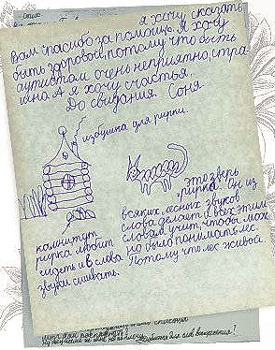 я хочу сказать
Вам спасибо за помощь. Я хочу
быть здоровой, потому что быть
аутистом очень неприятно, стра
шно. А я хочу счастья.
До свидания. Соня.
избушка для рирки.
это зверь
рирка. Он из
всяких лесных звуков
слова делает и всех этим
словам учит, чтобы мож
но было понимать лес
Потому что лес живой.
рирка любит
сидеть и в слова
звуки сшивать.